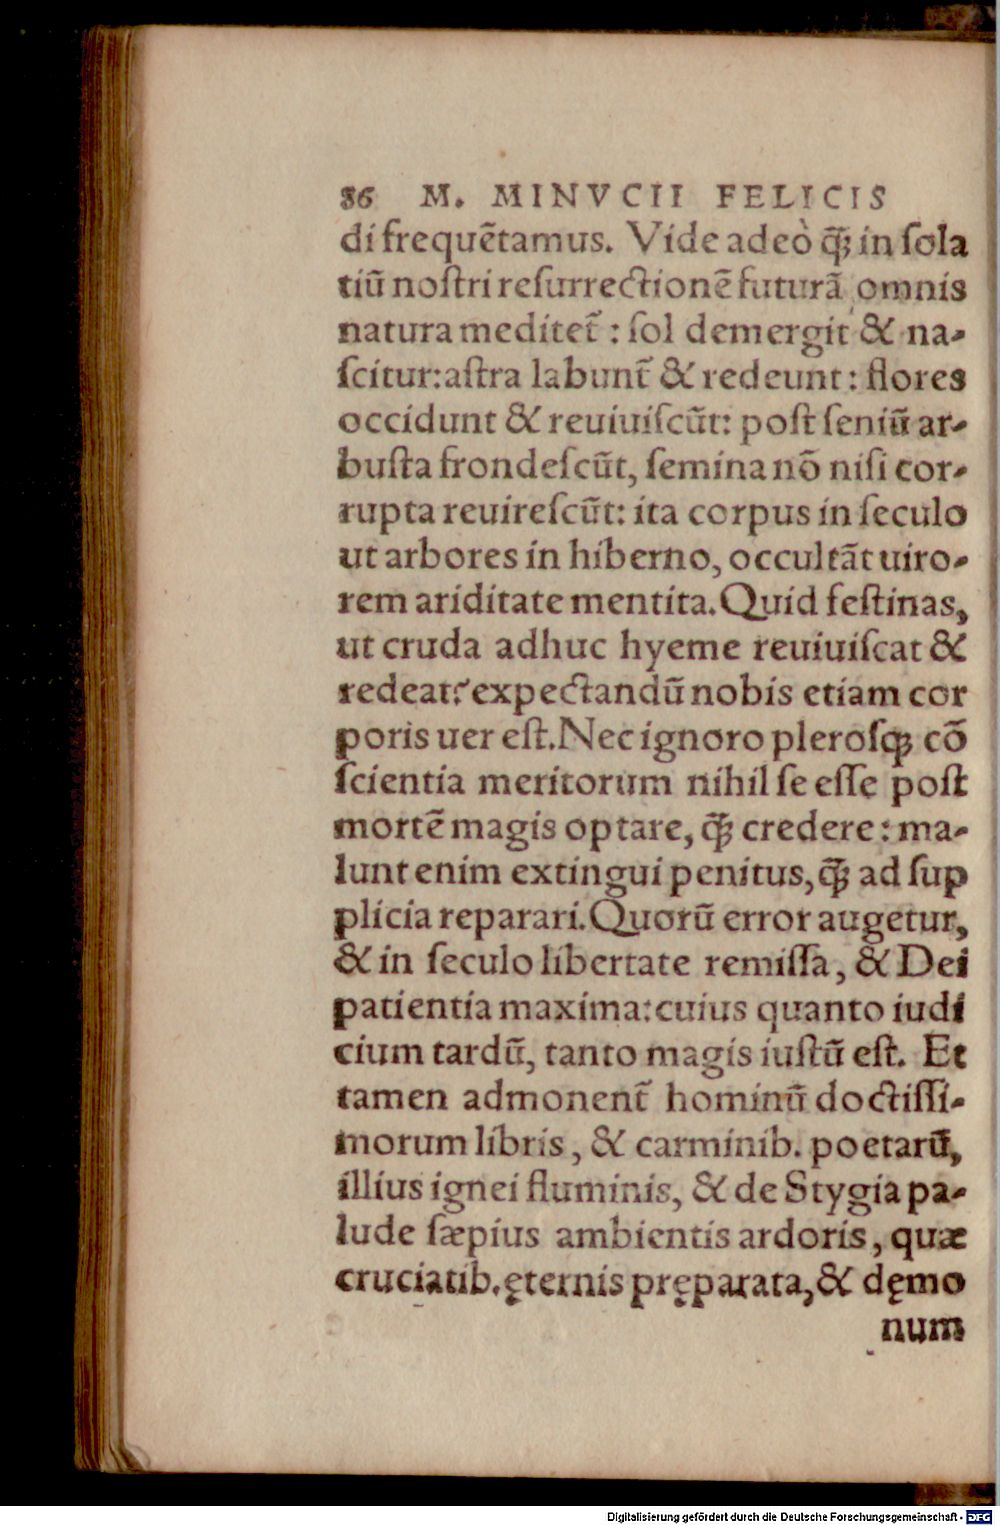 86 M. MINVCII FELICIS
di frequẽtamus. Vide adeò q̃ꝫ in ſola
tiũ noſtri reſurrectionẽ futurã omnis
natura meditet̃ : ſol demergit & na-
ſcitur: aſtra labunt̃ & redeunt: flores
occidunt & reuiuiſcũt: poſt ſeniũ ar-
buſta frondeſcũt, ſemina nõ niſi cor-
rupta reuireſcũt: ita corpus in ſeculo
ut arbores in hiberno, occultãt uiro-
rem ariditate mentita. Quid feſtinas,
ut cruda adhuc hyeme reuiuiſcat &
redeat? expectandũ nobis etiam cor
poris uer eſt. Nec ignoro pleroſqꝫ cõ
ſcientia meritorum nihil ſe eſſe poſt
mortẽ magis optare, q̃ꝫ credere: ma-
lunt enim extingui penitus, q̃ꝫ ad ſup
plicia reparari. Quorũ error augetur,
& in ſeculo libertate remiſſa, & Dei
patientia maxima: cuius quanto iudi
cium tardũ, tanto magis iuſtũ eſt. Et
tamen admonent̃ hominũ doctiſſi-
morum libris, & carminib. poetarũ,
illius ignei fluminis, & de Stygia pa-
lude ſæpius ambientis ardoris, quæ
cruciatib. ęternis pręparata, & dęmo
num
Digitalisierung gefördert durch die Deutsche Forschungsgemeinschaft - DFG